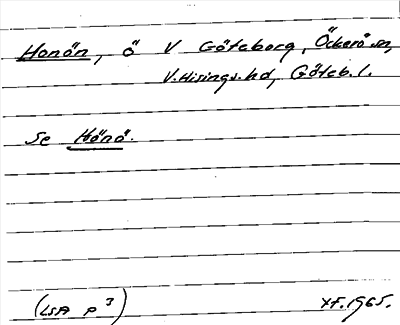 Honön, ö V Göteborg, Öckerö sn,
V. Hisings hd, Göteb. l.
Se Hönö.
(LSA p 3) XF. 1965.